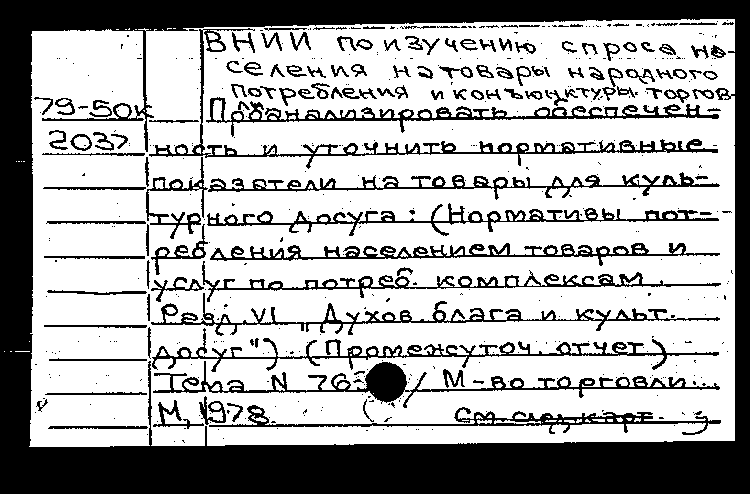 ВНИИ по изучению спроса на-
селения на товары народного
потребления и конъюнктуры торгов-
ли
79-50к Проанализировать обеспечен-
2037 ность и уточнить нормативные
показатели на товары для куль-
турного досуга: (Нормативы пот-
ребления населением товаров и
услуг по потреб. комплексам.
Разд. VI „Духов. блага и культ.
досуг"). (Промежуточ. отчет)
Тема N 763 / М-во торговли...
М, 1978. см. след. карт.